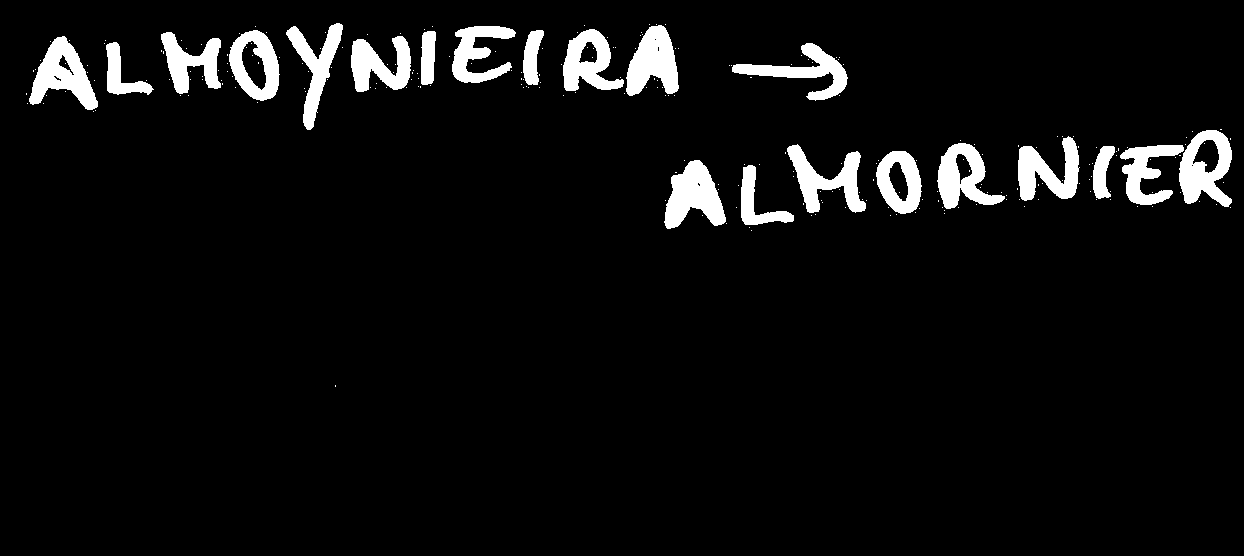 ALMOYNIEIRA →
ALMORNIER